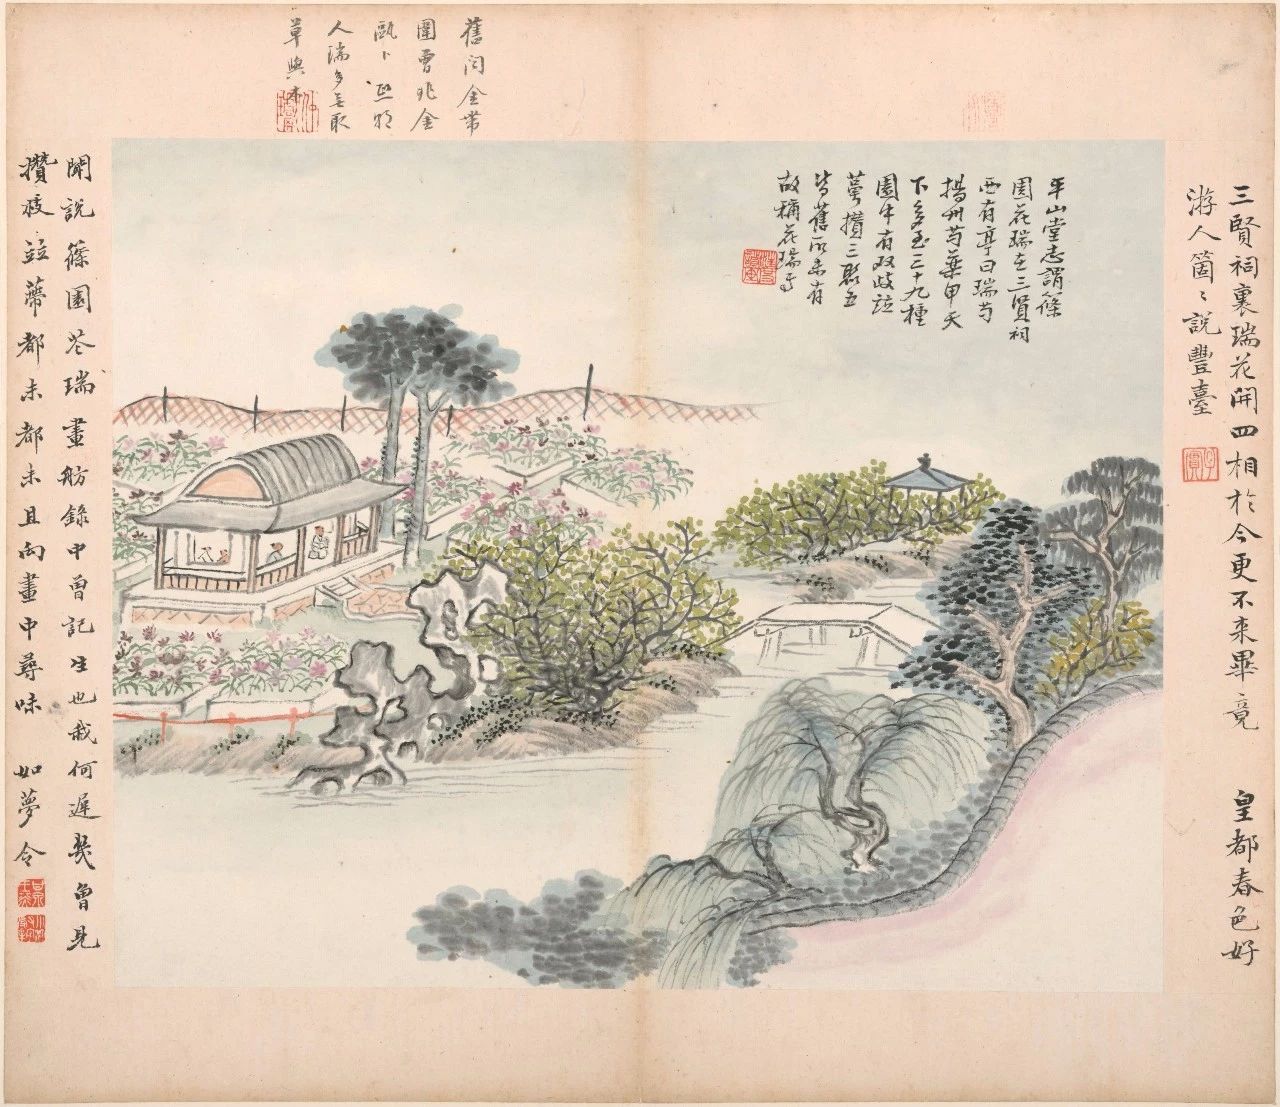 三賢祠裏瑞花開四相於今更不來畢竟 皇都春色好
游人箇〻說豐臺
平山堂志謂篠
園花瑞在三賢祠
西有亭曰瑞芍
揚州芍藥甲天
下多至三十九種
園中有双歧竝
萼攢三聚五
皆舊所未有
故稱花瑞焉
舊聞金帶
圍曾兆金
甌卜 熙朝
人瑞多無取
草與木
聞說篠園花瑞畫舫錄中曾記生也我何遲幾曾見
攢枝竝蒂都未都未且向畫中尋味 如夢令